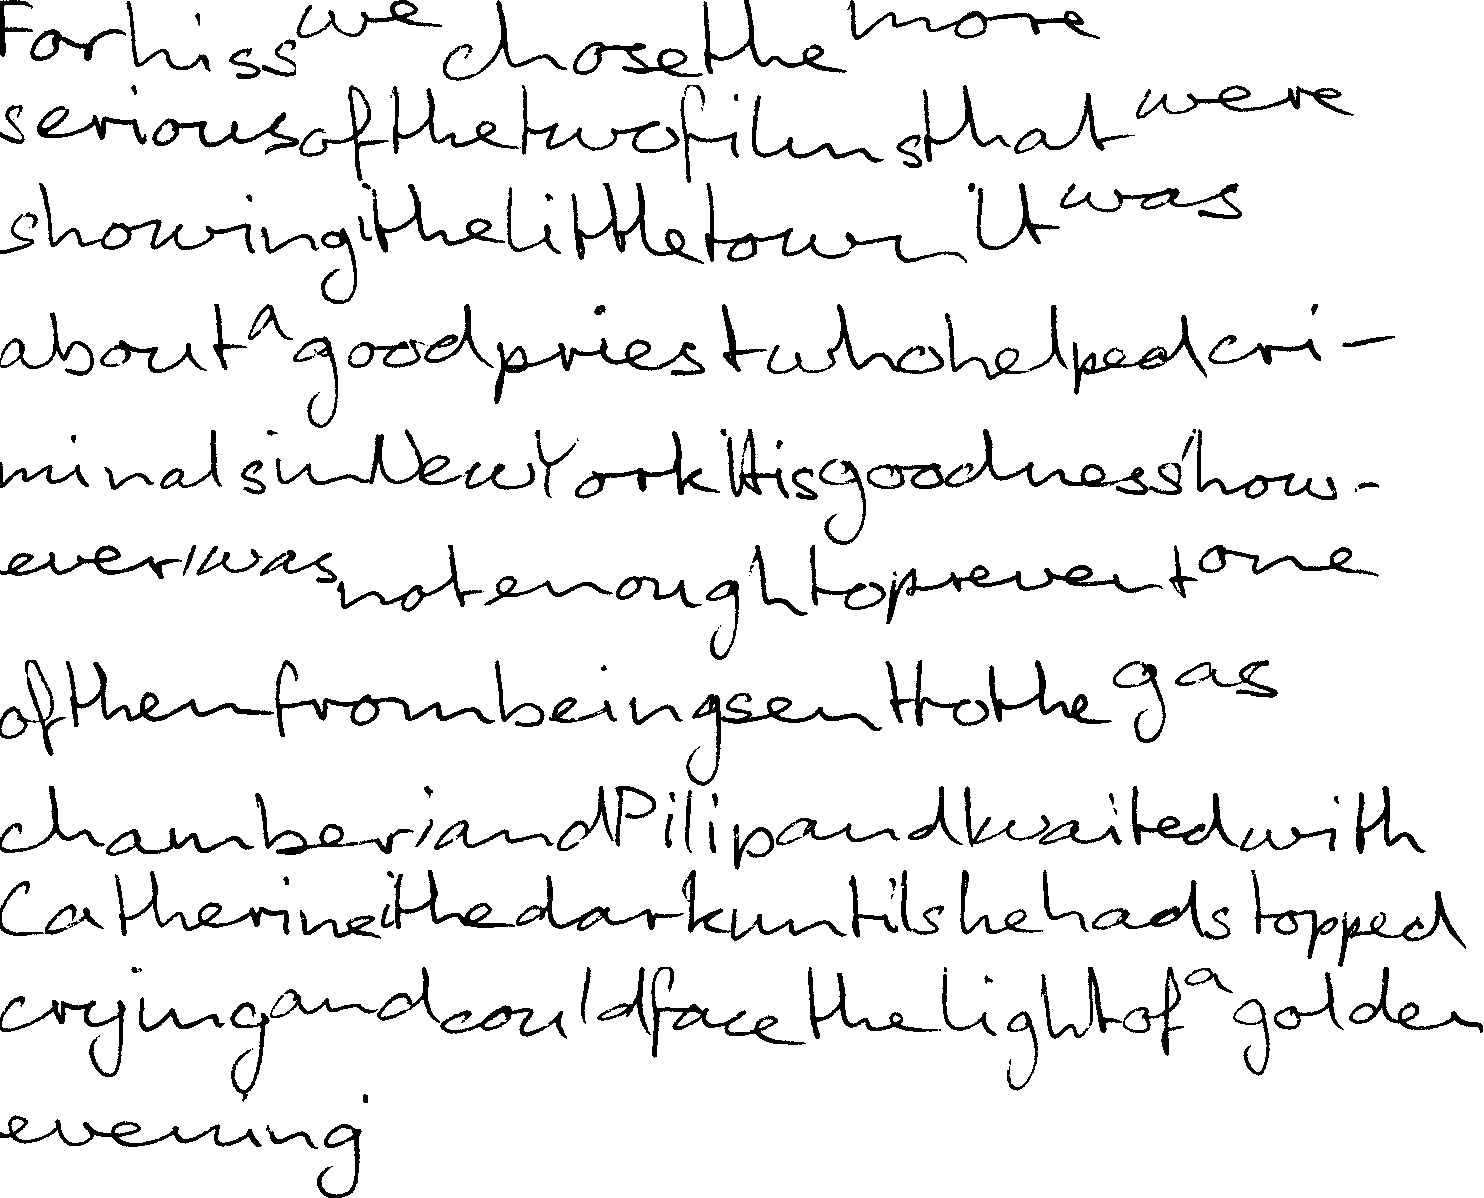 For hiss we chose the more
serious of the two films that were
showing i the little town. It was
about a good priest who helped cri-
minals in New York. His goodness, how-
ever, was not enough to prevent one
of them from being sent to the gas
chamber, and Pilip and I waited with
Catherine i the dark until she had stopped
crying and could face the light of a golden
evening.